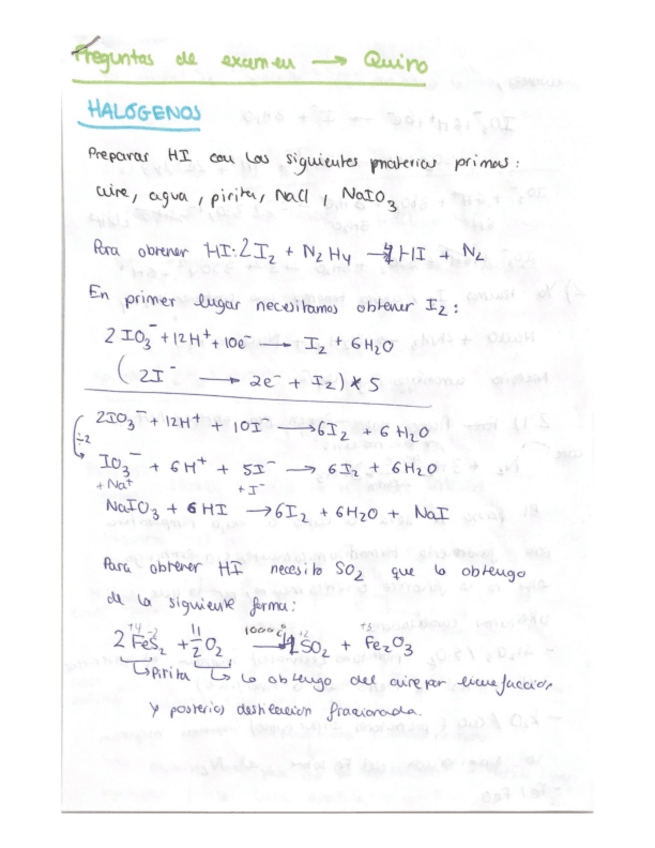 Preguntas de examen → Quiro
HALÓGENOS
Preparar HI con las siguientes materias primas:
aire, agua, pirita, NaCl, NaIO3
Para obtener HI: 2I2 + N2H4 → 4HI + N2
En primer lugar necesitamos obtener I2:
2 IO3⁻ + 12H⁺ + 10e⁻ → I2 + 6H2O
( 2I⁻ → 2e⁻ + I2) x 5
2IO3⁻ + 12H⁺ + 10I⁻ → 6I2 + 6H2O
÷2
IO3⁻ + 6H⁺ + 5I⁻ → 6I2 + 6H2O
+ Na⁺ + I⁻
NaIO3 + 6 HI → 6I2 + 6H2O + NaI
Para obtener HI necesito SO2 que lo obtengo
de la siguiente forma:
+4 -2 1000ºC +2 +3
2 FeS2 + 11/2 O2 → 4SO2 + Fe2O3
↳ Pirita ↳ lo obtengo del aire por licuefacción
y posterior destilación fraccionada.